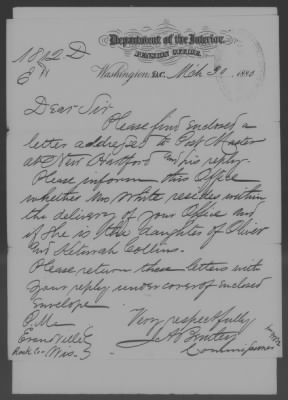 1812 D
Department of the Interior,
PENSION OFFICE,
Washington, D.C. Mch 30, 1880
Dear Sir
Please find enclosed a
letter addressed to Post Master
at New Bradford and his reply.
Please inform this Office
whether Mrs White resides within
the delivery of your Office and
if she is the daughter of Oliver
and Keturah Collins.
Please return these letters with
your reply under cover of Enclosed
Envelope
P.M. Very respectfully
Evansville J A Bentley
Rock Co. Wis. Commissioner